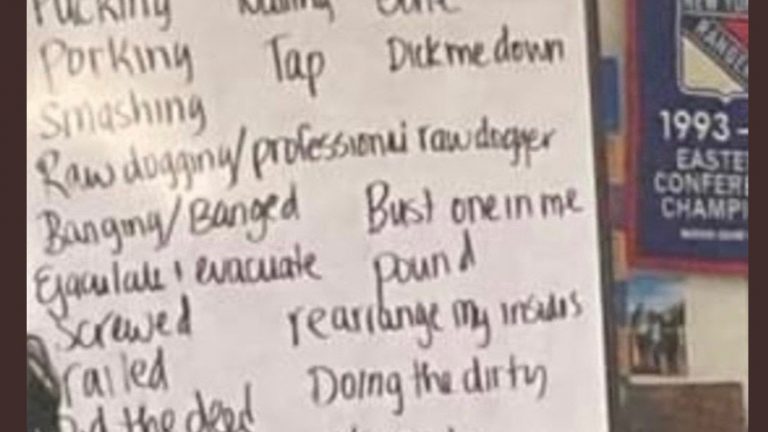 Fucking Bone
Porking Tap Dick me down
Smashing
Raw dogging/professional rawdogger
Banging/Banged Bust one in me
Ejaculate & evacuate pound
Screwed rearrange my insides
railed Doing the dirty
the deed
NEW YORK
RANGERS
1993-
EASTE
CONFERE
CHAMPI